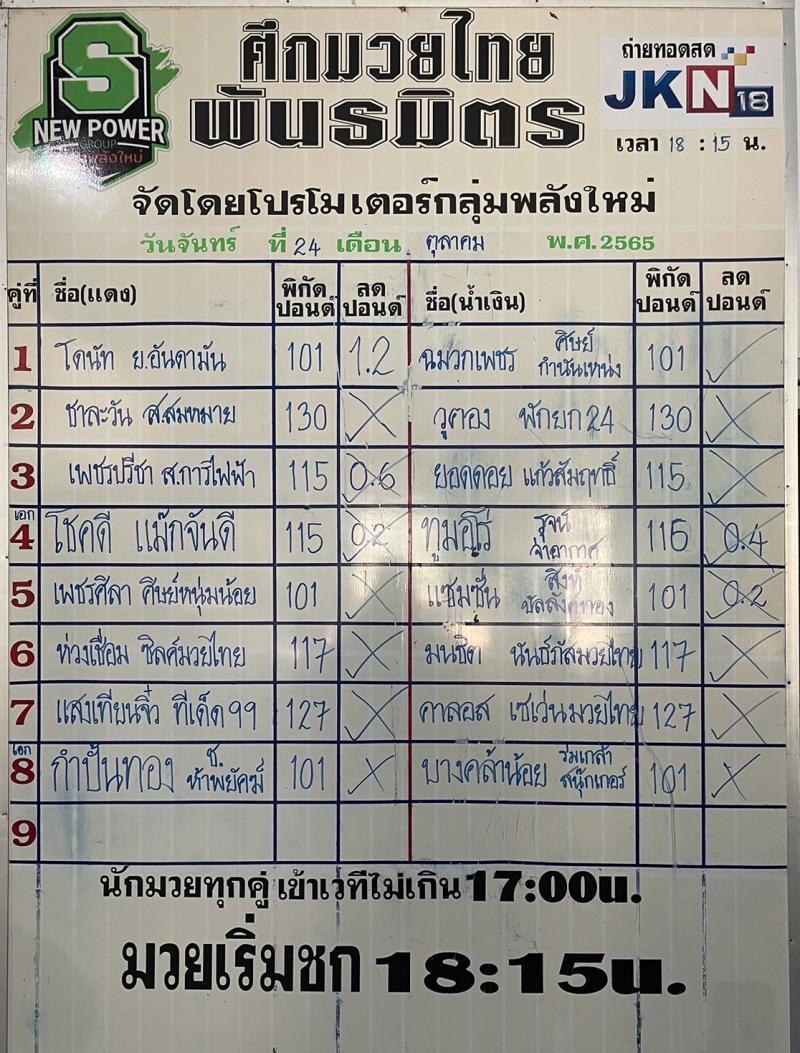 S
NEW POWER
GROUP
พลังใหม่
ศึกมวยไทย
พันธมิตร
ถ่ายทอดสด
JKN18
เวลา 18 : 15 น.
จัดโดยโปรโมเตอร์กลุ่มพลังใหม่
วันจันทร์ ที่ 24 เดือน ตุลาคม พ.ศ. 2565
คู่ที่ ชื่อ(แดง) พิกัดปอนด์ ลดปอนด์ ชื่อ(น้ำเงิน) พิกัดปอนด์ ลดปอนด์
1 โดนัท ย.อันดามัน 101 1.2 ฉมวกเพชร ศิษย์กำนันเหน่ง 101 ✓
2 ชาละวัน ส.สมหมาย 130 X วูคอง พักยก24 130 X
3 เพชรปรีชา ส.การไฟฟ้า 115 0.6 ยอดดอย แก้วสัมฤทธิ์ 115 X
เอก 4 โชคดี แม๊กจันดี 115 0.2 ทูมอร์โร่ รุจน์จ่าอากาศ 116 0.4
5 เพชรศิลา ศิษย์หนุ่มน้อย 101 X แซมซั่น สิงห์บัลลังค์ทอง 101 0.2
6 ห่วงเชื่อม ซิลค์มวยไทย 117 X มนชิต นันธ์ภัสมวยไทย 117 X
7 แสงเทียนจิ๋ว ทีเด็ด99 127 X คาลอส เซเว่นมวยไทย 127 X
เอก 8 กำปั้นทอง ช.ห้าพยัคฆ์ 101 X บางคล้าน้อย ร่มเกล้าสนุ๊กเกอร์ 101 X
9
นักมวยทุกคู่ เข้าเวทีไม่เกิน 17:00น.
มวยเริ่มชก 18:15น.